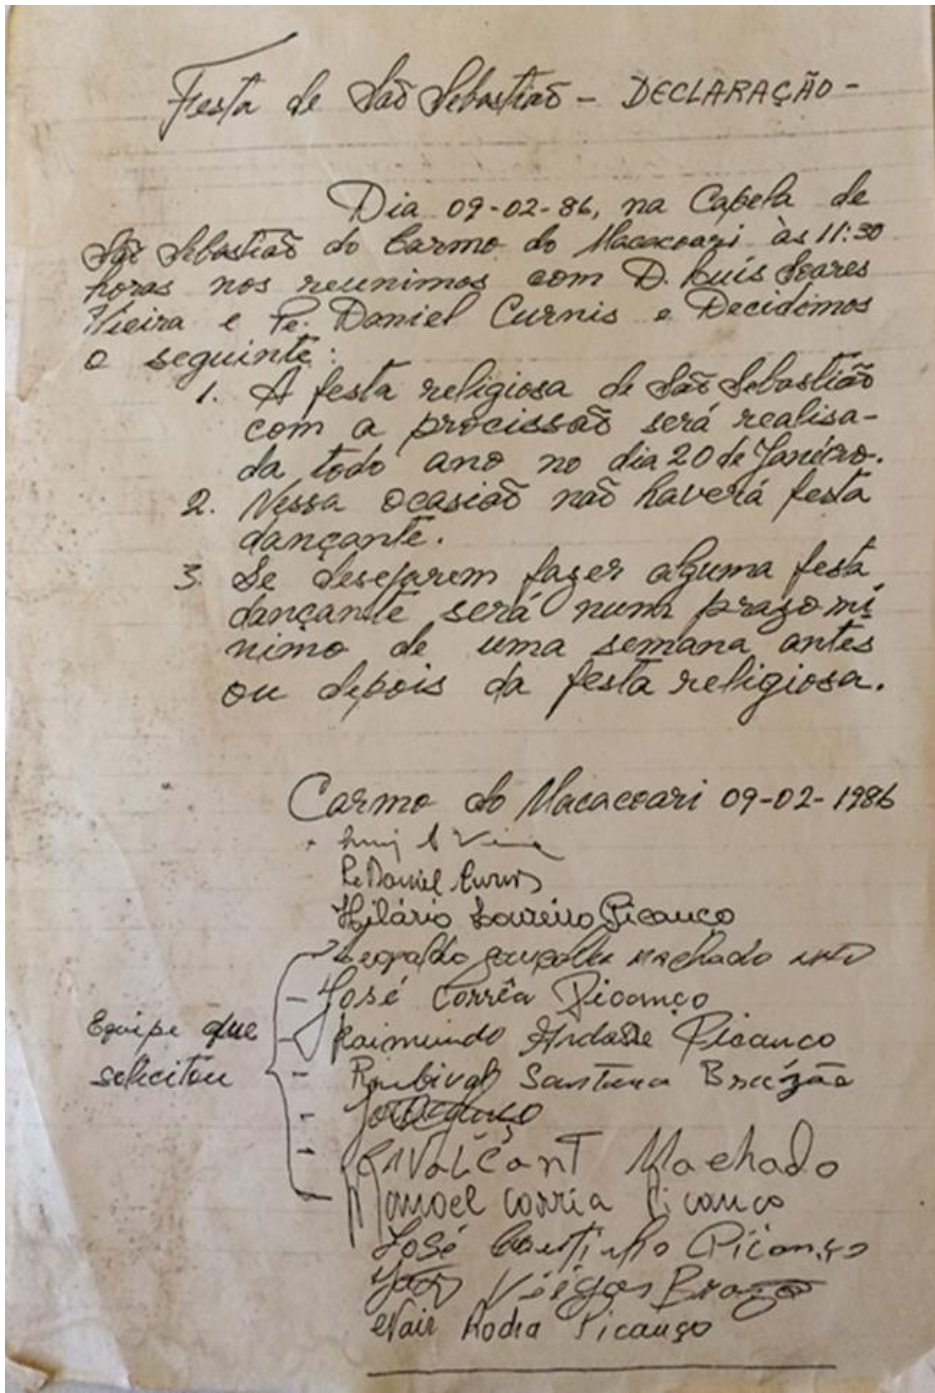 Festa de São Sebastião - DECLARAÇÃO -
Dia 09-02-86, na Capela de
São Sebastião do Carmo do Macacoari às 11:30
horas nos reunimos com D. Luís Soares
Vieira e Pe. Daniel Curnis e Decidimos
o seguinte:
1. A festa religiosa de São Sebastião
com a procissão será realisa-
da todo ano no dia 20 de Janeiro.
2. Nessa ocasião não haverá festa
dançante.
3. Se desejarem fazer alguma festa
dançante será num prazo mí
nimo de uma semana antes
ou depois da festa religiosa.
Carmo do Macacoari 09-02-1986
Pe Daniel Curnis
Hilário Loureiro Picanço
Machado
José Corrêa Picanço
Equipe que
solicitou
Raimundo Andade Picanco
Santana
Machado
Manoel Corria Picanco
José Coutinho Picanço
Picanço